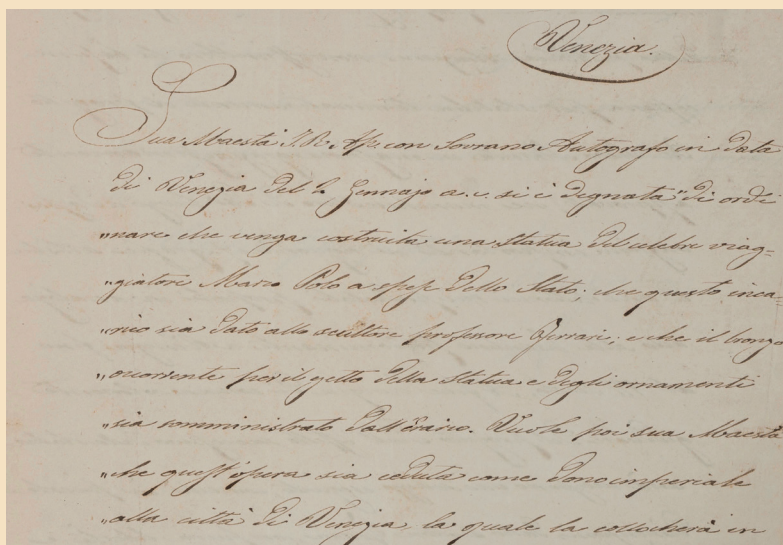 Venezia.
Sua Maestà I. R. Ap. con Sovrano Autografo in data
di Venezia del Gennajo a. c. si è degnata "di ordi
"nare che venga costruita una statua del celebre viag=
"giatore Marco Polo a spese dello Stato; che questo inca=
"rico sia dato allo scultore professore Ferrari; e che il bronzo
"occorrente per il getto della statua e degli ornamenti
"sia somministrato dall'erario. Vuole poi sua Maestà
"che quest'opera sia ceduta come dono imperiale
"alla città di Venezia, la quale la collocherà in